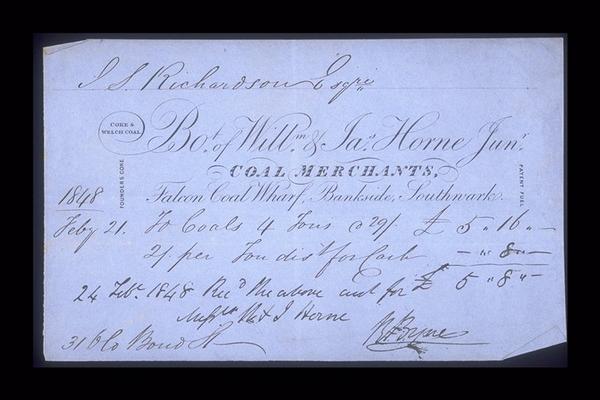 S. S. Richardson Esqre
COKE &
WELCH COAL
Bot. of Willm. & Jas. Horne Junr.
FOUNDERS COKE
COAL MERCHANTS,
PATENT FUEL
Falcon Coal Wharf, Bankside, Southwark.
1848
Feby 21. To Coals 4 Tons @ 29/. £ 5 " 16 " —
2/ per Ton dist for Cash — " 8 " —
£ 5 " 8 " —
24 Feb. 1848 Recd the above and for
W & J Horne
31 Bond St